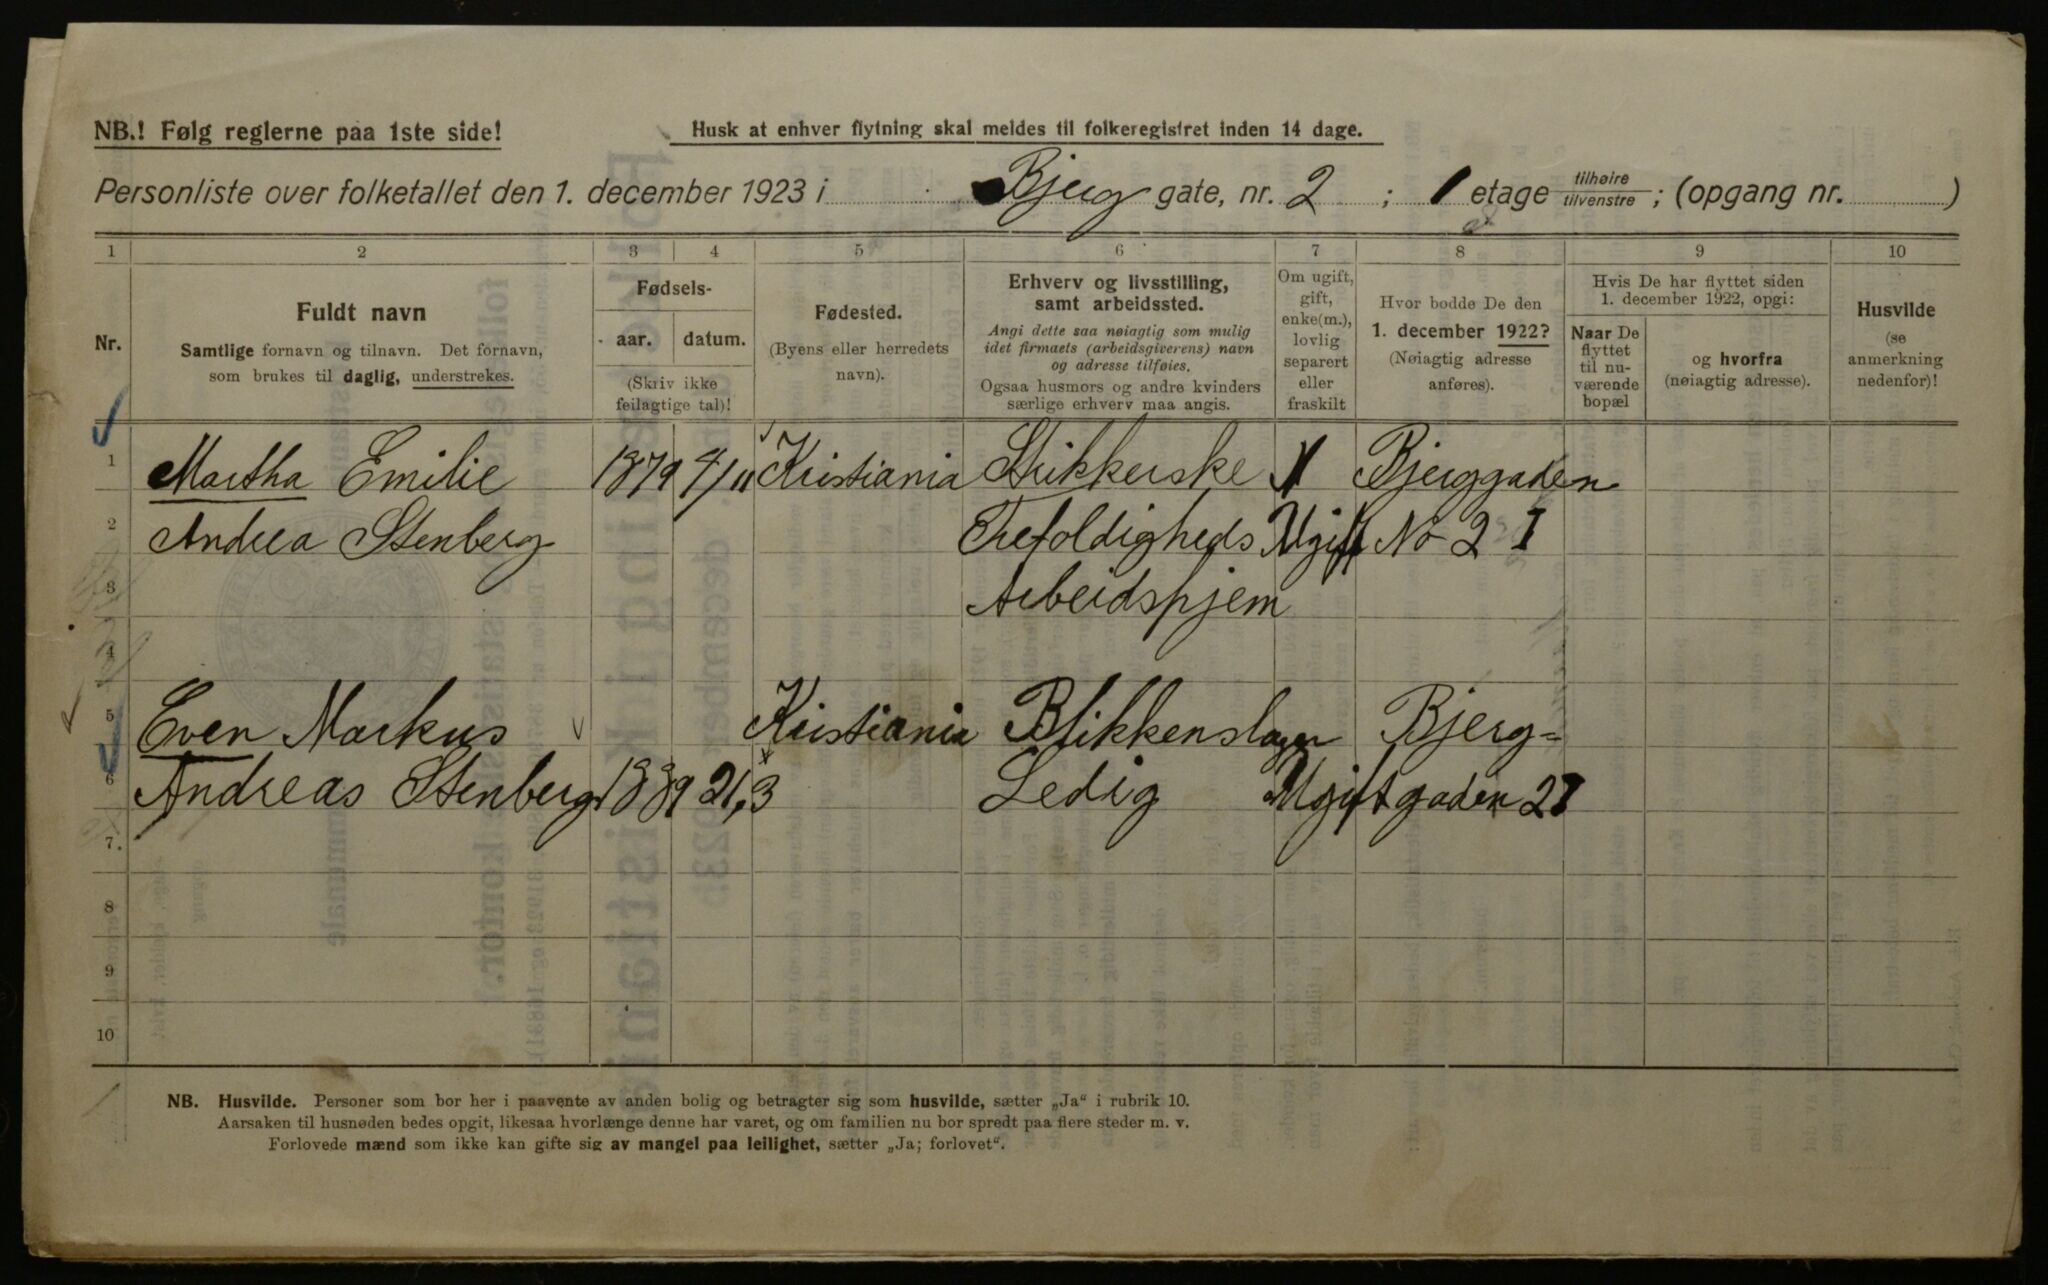 NB.! Følg reglerne paa 1ste side!
Husk at enhver flytning skal meldes til folkeregistret inden 14 dage.
Personliste over folketallet den 1. december 1923 i Bjerg gate, nr. 2 ; 1 etage tilhøire tilvenstre ; (opgang nr. )
1 2 3 4 5 6 7 8 9 10
Nr.
Fuldt navn
Samtlige fornavn og tilnavn. Det fornavn,
som brukes til daglig, understrekes.
Fødsels-
aar. datum.
(Skriv ikke
feilagtige tal)!
Fødested.
(Byens eller herredets
navn).
Erhverv og livsstilling,
samt arbeidssted.
Angi dette saa nøiagtig som mulig
idet firmaets (arbeidsgiverens) navn
og adresse tilføies.
Ogsaa husmors og andre kvinders
særlige erhverv maa angis.
Om ugift,
gift,
enke(m.),
lovlig
separert
eller
fraskilt
Hvor bodde De den
1. december 1922?
(Nøiagtig adresse
anføres).
Hvis De har flyttet siden
1. december 1922, opgi:
Naar De
flyttet
til nu-
værende
bopæl
og hvorfra
(nøiagtig adresse).
Husvilde
(se
anmerkning
nedenfor)!
1 Martha Emilie 1879 4/11 Kristiania Strikkerske Bjerggaden
2 Andrea Stenberg Trefoldigheds Ugift No 2 I
3 Arbeidshjem
4
5 Even Markus Kristiania Blikkenslager Bjerg=
6 Andreas Stenberg 1889 21,3 Ledig Ugift gaden 2 I
7.
8
9
10
NB. Husvilde. Personer som bor her i paavente av anden bolig og betragter sig som husvilde, sætter „Ja“ i rubrik 10.
Aarsaken til husnøden bedes opgit, likesaa hvorlænge denne har varet, og om familien nu bor spredt paa flere steder m. v.
Forlovede mænd som ikke kan gifte sig av mangel paa leilighet, sætter „Ja; forlovet“.